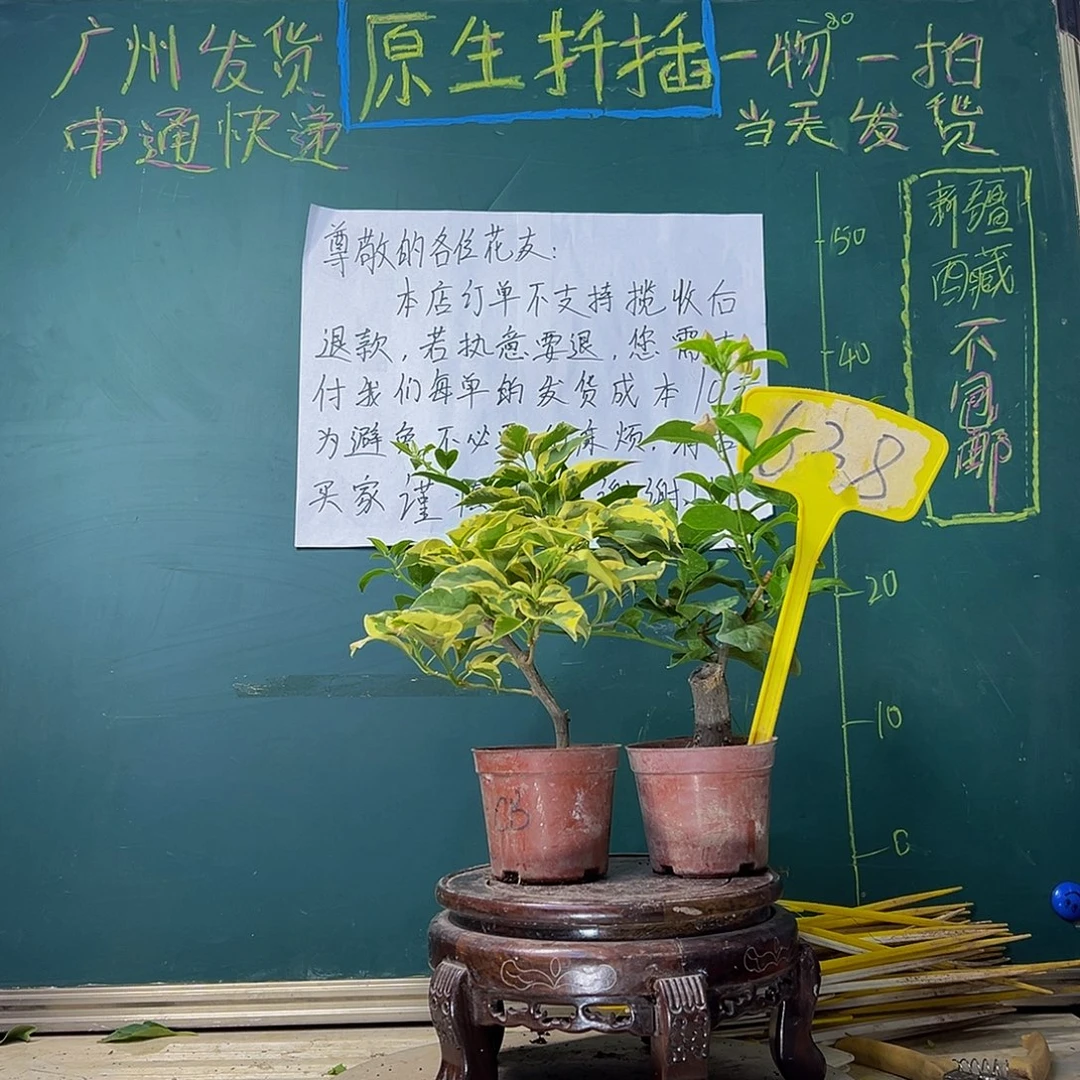 广州发货
申通快递
原生扦插
一物一拍
80
当天发货
新疆
西藏
不包邮
尊敬的各位花友:
本店订单不支持揽收后
退款,若执意要退,您需
付我们每单的发货成本10
为避免不必 烦,
买家谨
谢
50
40
20
10
0
638
CB